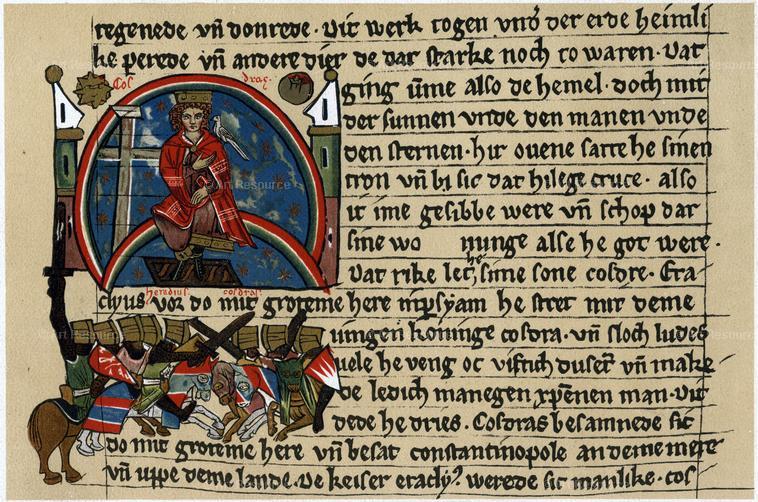 regenede vn̄ donrede · Dit werk togen vnd̕ der erde heimli
ke perede vn̄ andere dier de dar starke noch to waren · Dat
Cos drag·
ging v̄me also de hemel · doch mit
der sunnen vnde den manen vnde
den sternen · hir ouene satte he sinen
tron vn̄ bi sic dat hilege cruce · also
it ime gesibbe were vn̄ schop dar
sine wo nunge alse he got were ·
Dat rike let he sime sone cosdre · Era
heraclius· cosdras·
clyus vor do mit groteme here in psyam he stret mit deme
iungen koninge cosdra · vn̄ sloch ludes
uele he veng oc viftich dusēt vn̄ make
de ledich manegen xpēnen man · Dit
dede he dries · Cosdras besamnede sic
do mit groteme here vn̄ besat constantinopole an deme mere
vn̄ uppe deme lande · De keiser eracly? werede sic manlike · cos